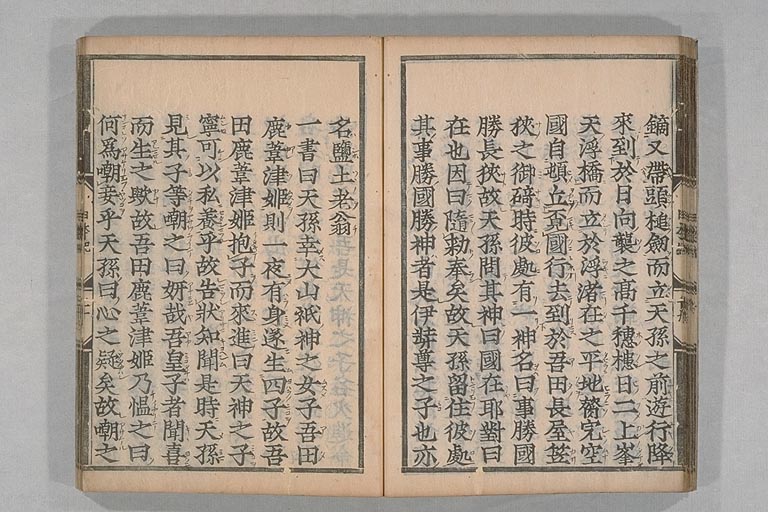 鏑又帶頭槌劒而立天孫之前遊行降
來到於日向襲之髙千穗槵日二上峯
天浮橋而立於浮渚在之平地膂宍空
國自頓丘覓國行去到於吾田長屋笠
狹之御碕時彼處有一神名曰事勝國
勝長狹故天孫問其神曰國在耶對曰
在也因曰隨勅奉矣故天孫留住彼處
其事勝國勝神者是伊弉尊之子也亦
名鹽土老翁
一書曰天孫幸大山祇神之女子吾田
鹿葦津姬則一夜有身遂生四子故吾
田鹿葦津姬抱子而來進曰天神之子
寧可以私養乎故告狀知聞是時天孫
見其子等嘲之曰妍哉吾皇子者聞喜
而生之歟故吾田鹿葦津姬乃慍之曰
何爲嘲妾乎天孫曰心之疑矣故嘲之